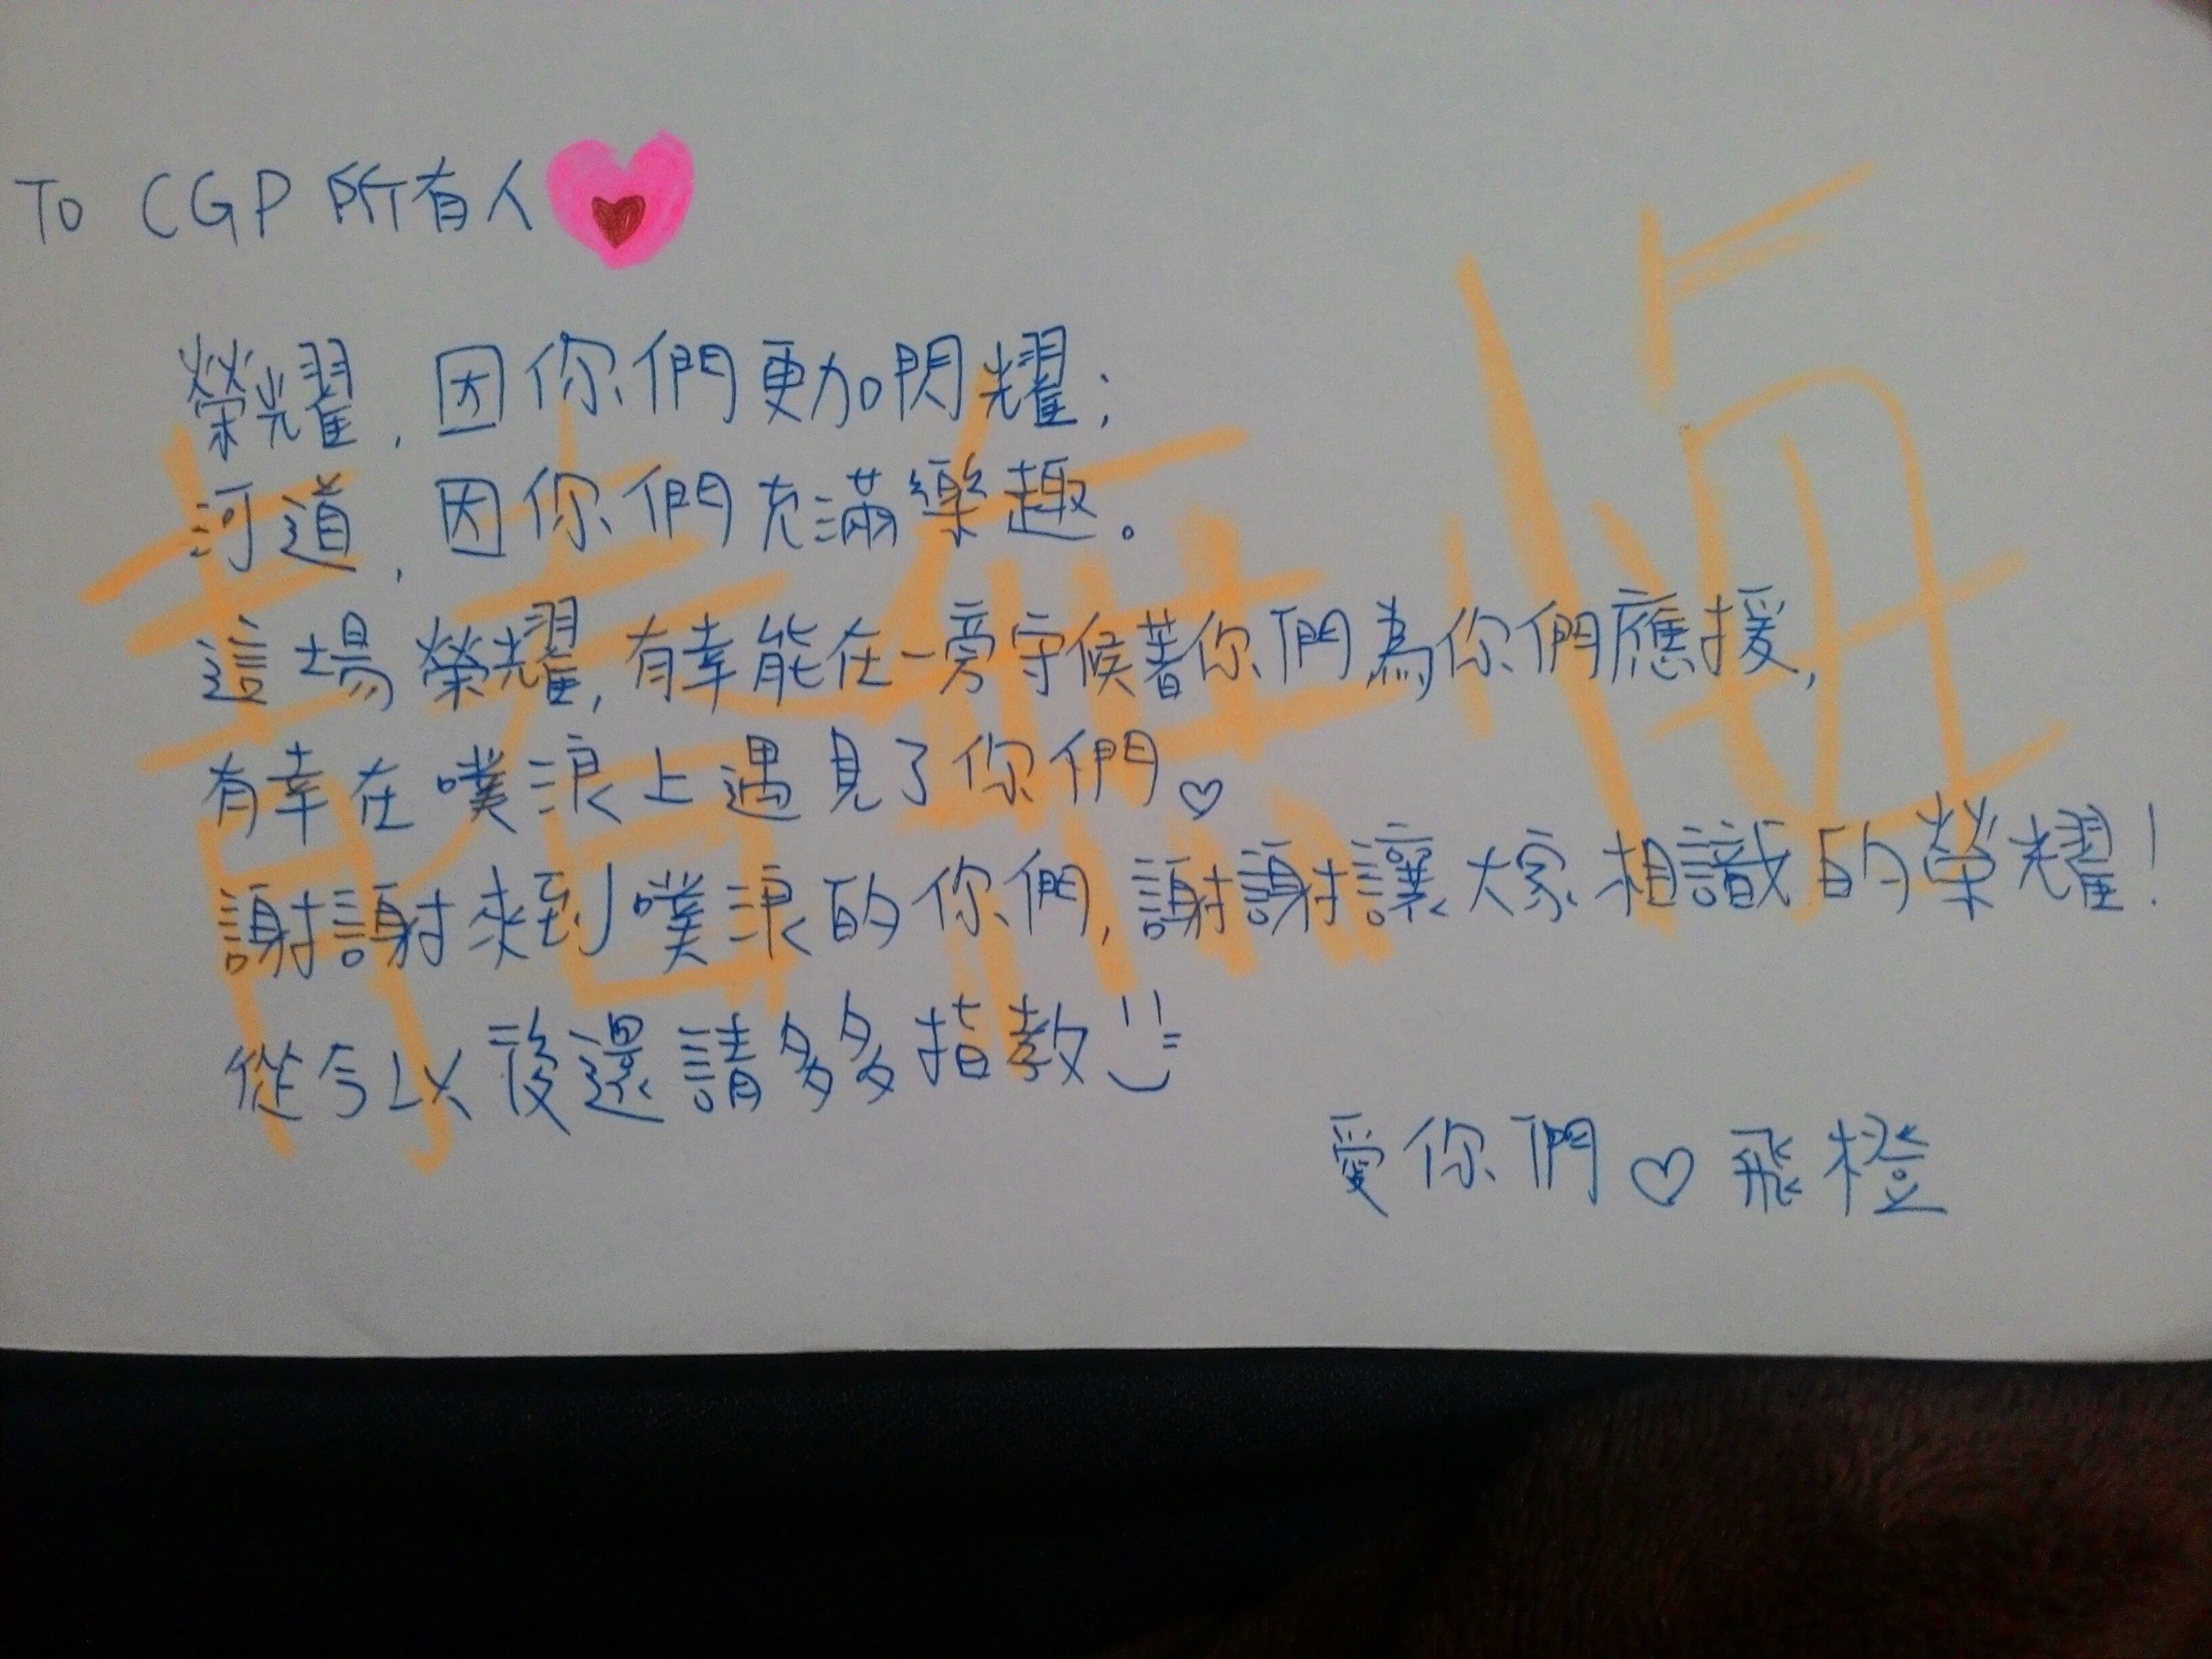 To CGP 所有人
榮耀，因你們更加閃耀；
河道，因你們充滿樂趣。
這場榮耀，有幸能在一旁守候著你們為你們應援，
有幸在噗浪上遇見了你們。♡
謝謝來到噗浪的你們，謝謝讓大家相識的榮耀！
從今以後還請多多指教
愛你們♡飛橙
青春無悔